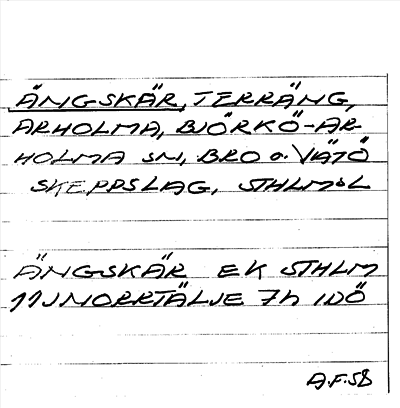 ÄNGSKÄR, TERRÄNG,
ARHOLMA, BJÖRKÖ-AR-
HOLMA SN, BRO o. VÄTÖ
SKEPPSLAG, STHLMS L
ÄNGSKÄR EK STHLM
11J NORRTÄLJE 7h IDÖ
A.F. 58